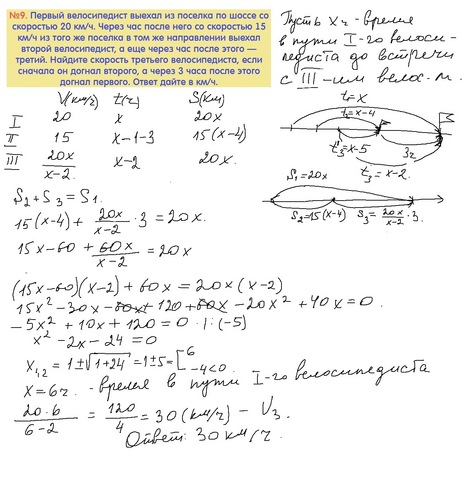 №9. Первый велосипедист выехал из поселка по шоссе со
скоростью 20 км/ч. Через час после него со скоростью 15
км/ч из того же поселка в том же направлении выехал
второй велосипедист, а еще через час после этого —
третий. Найдите скорость третьего велосипедиста, если
сначала он догнал второго, а через 3 часа после этого
догнал первого. Ответ дайте в км/ч.
Пусть x ч - время
в пути I-го велоси-
педиста до встречи
с III-им велос-м.
V(км/ч) t(ч) S(км)
I 20 x 20x
II 15 x-1-3 15(x-4)
III 20x/x-2 x-2 20x.
t₁=x
t₂=x-4
t₃'=x-5
3ч
t₃=x-2.
S₁=20x
S₂=15(x-4) S₃=20x/x-2·3.
S₂+S₃=S₁.
15(x-4)+20x/x-2·3=20x.
15x-60+60x/x-2=20x
(15x-60)(x-2)+60x=20x(x-2)
15x²-30x-60x+120+60x-20x²+40x=0.
-5x²+10x+120=0 |:(-5)
x²-2x-24=0
x₁,₂=1±√1+24=1±5=[6
-4<0.
x=6ч. - время в пути I-го велосипедиста
20·6/6-2=120/4=30(км/ч)-V₃.
Ответ: 30км/ч.